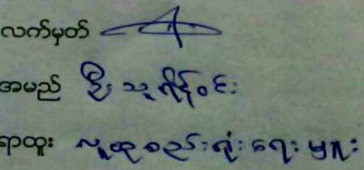 လက်မှတ်
အမည် ဦး သူရိန်ဝင်း
ရာထူး လူထုစည်းရုံးရေးမှူး